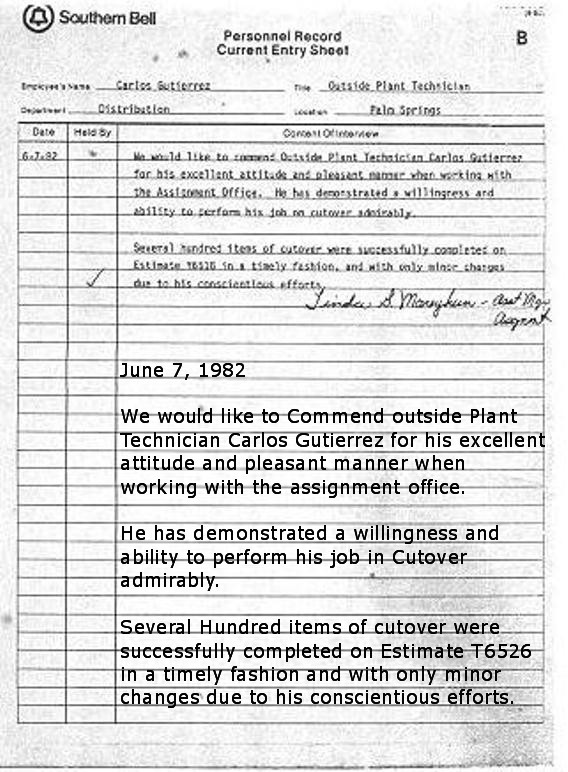 Southern Bell
Personnel Record
Current Entry Sheet
B
Employee's Name Carlos Gutierrez Title Outside Plant Technician
Department Distribution Location Palm Springs
Date Held By Content Of Interview
6-7-82 We would like to commend Outside Plant Technician Carlos Gutierrez
for his excellent attitude and pleasant manner when working with
the Assignment Office. He has demonstrated a willingness and
ability to perform his job on cutover admirably.
Several hundred items of cutover were successfully completed on
Estimate T6526 in a timely fashion, and with only minor changes
due to his conscientious efforts.
Linda S. - Asst Mgr
Asgmt
June 7, 1982
We would like to Commend outside Plant
Technician Carlos Gutierrez for his excellent
attitude and pleasant manner when
working with the assignment office.
He has demonstrated a willingness and
ability to perform his job in Cutover
admirably.
Several Hundred items of cutover were
successfully completed on Estimate T6526
in a timely fashion and with only minor
changes due to his conscientious efforts.